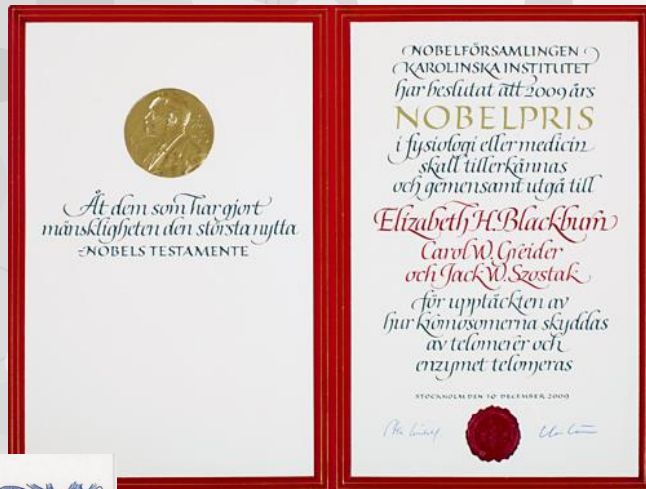 Åt dem som har gjort
mänskligheten den största nytta
-NOBELS TESTAMENTE
NOBELFÖRSAMLINGEN
KAROLINSKA INSTITUTET
har beslutat att 2009 års
NOBELPRIS
i fysiologi eller medicin
skall tillerkännas
och gemensamt utgå till
Elizabeth H. Blackburn
Carol W. Greider
och Jack W. Szostak
för upptäckten av
hur kromosomerna skyddas
av telomerer och
enzymet telomeras
STOCKHOLM DEN 10 DECEMBER 2009